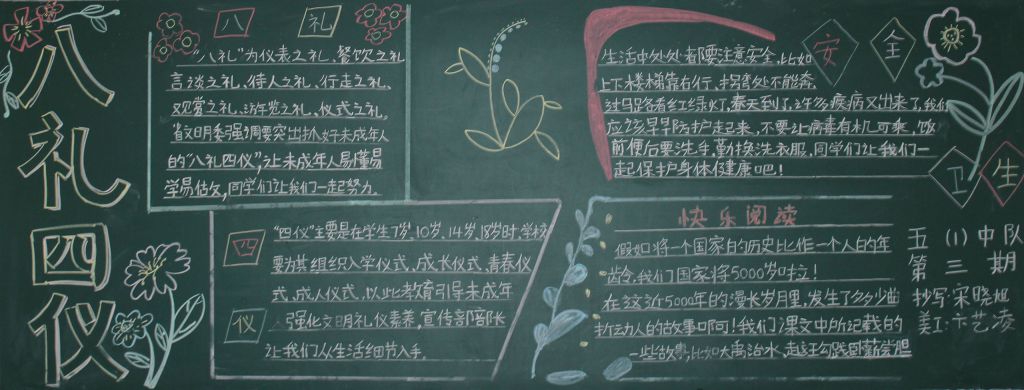 八礼四仪
八礼
“八礼”为仪表之礼、餐饮之礼
言谈之礼、待人之礼、行走之礼、
观赏之礼、游览之礼、仪式之礼。
省文明委强调要突出抓好未成年人
的“八礼四仪”，让未成年人易懂易
学易做，同学们让我们一起努力。
四仪
“四仪”主要是在学生7岁、10岁、14岁、18岁时，学校
要为其组织入学仪式、成长仪式、青春仪
式、成人仪式，以此教育引导未成年
人强化文明礼仪素养，宣传部部长
让我们从生活细节入手。
安全卫生
生活中处处都要注意安全，比如
上下楼梯靠右行，拐弯处不能奔，
过马路看红绿灯，春天到了，许多疾病又出来了，我们
应该早早防护起来，不要让病毒有机可乘，饭
前便后要洗手，勤换洗衣服，同学们让我们一
起保护身体健康吧！
快乐阅读
假如将一个国家的历史比作一个人的年
龄，我们国家将5000岁啦！
在这近5000年的漫长岁月里，发生了多少曲
折动人的故事啊！我们课文中所记载的
一些故事，比如大禹治水，越王勾践卧薪尝胆
五（1）中队
第三期
抄写：宋晓旭
美工：卞艺凌